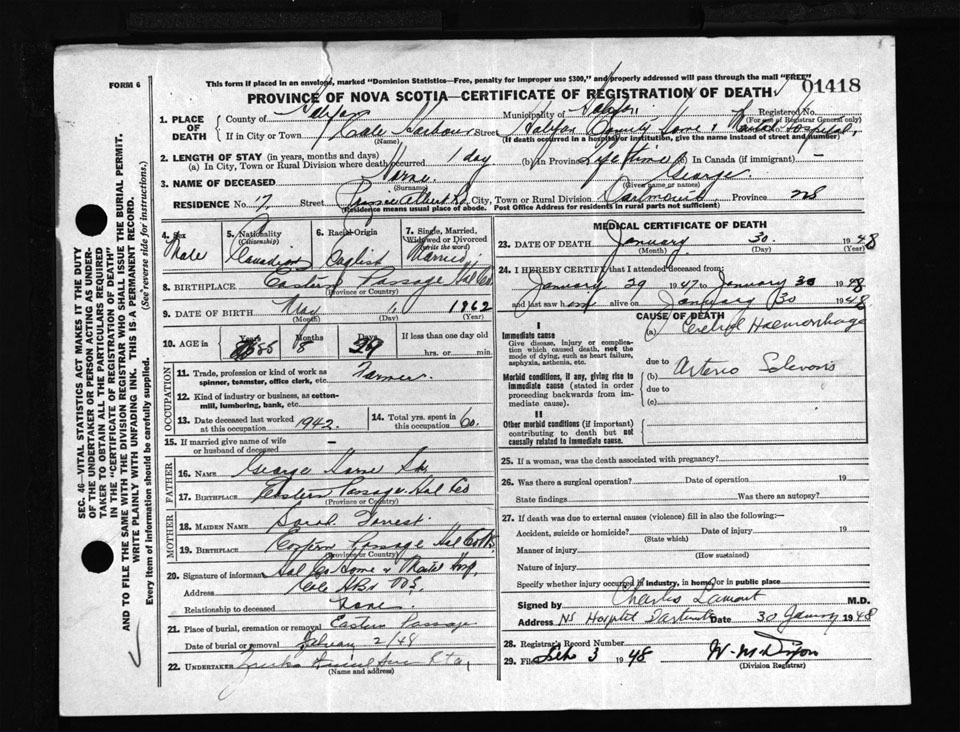 FORM 6
This form if placed in an envelope, marked "Dominion Statistics—Free, penalty for improper use $300," and properly addressed will pass through the mail "FREE"
PROVINCE OF NOVA SCOTIA—CERTIFICATE OF REGISTRATION OF DEATH
01418
SEC. 46 VITAL STATISTICS ACT MAKES IT THE DUTY OF THE UNDERTAKER OR PERSON ACTING AS UNDERTAKER TO OBTAIN ALL THE PARTICULARS REQUIRED IN THE "CERTIFICATE OF REGISTRATION OF DEATH" AND TO FILE THE SAME WITH THE DIVISION REGISTRAR WHO SHALL ISSUE THE BURIAL PERMIT.
WRITE PLAINLY WITH UNFADING INK. THIS IS A PERMANENT RECORD.
Every item of information should be carefully supplied. (See reverse side for instructions.)
1. PLACE OF DEATH
County of Halifax Municipality of Halifax Registered No.
(For use of Registrar General only)
If in City or Town Cole Harbour Street Halifax County Home & Hospital
(Name) (If death occurred in a hospital or institution, give the name instead of street and number)
2. LENGTH OF STAY (in years, months and days)
(a) In City, Town or Rural Division where death occurred 1 day (b) In Province life time (c) In Canada (if immigrant) —
3. NAME OF DECEASED Horne George
(Surname) (Given name or names)
RESIDENCE No. 17 Street Prince Albert Rd City, Town or Rural Division Dartmouth Province NS
(Residence means usual place of abode. Post Office Address for residents in rural parts not sufficient)
4. Sex Male
5. Nationality (Citizenship) Canadian
6. Racial Origin English
7. Single, Married, Widowed or Divorced (write the word) Married
8. BIRTHPLACE Eastern Passage Hal Co
(Province or Country)
9. DATE OF BIRTH May 1 1862
(Month) (Day) (Year)
10. AGE in Years 85 Months 8 Days 29 If less than one day old
hrs. or min.
OCCUPATION
11. Trade, profession or kind of work as spinner, teamster, office clerk, etc. Farmer
12. Kind of industry or business, as cotton-mill, lumbering, bank, etc.
13. Date deceased last worked at this occupation 1942
14. Total yrs. spent in this occupation 60
15. If married give name of wife or husband of deceased
FATHER
16. NAME George Horne Sr
17. BIRTHPLACE Eastern Passage Hal Co
(Province or Country)
MOTHER
18. MAIDEN NAME Sarah Forrest
19. BIRTHPLACE Eastern Passage Hal Co NS
(Province or Country)
20. Signature of informant Hal Co Home & Hosp
Address Cole Hbr
Relationship to deceased None
21. Place of burial, cremation or removal Eastern Passage
Date of burial or removal February 2/48
22. UNDERTAKER
(Name and address)
MEDICAL CERTIFICATE OF DEATH
23. DATE OF DEATH January 30 1948
(Month) (Day) (Year)
24. I HEREBY CERTIFY that I attended deceased from:
January 29 1947 to January 30 1948
and last saw him alive on January 30 1948
CAUSE OF DEATH
I
Immediate cause
Give disease, injury or complication which caused death, not the mode of dying, such as heart failure, asphyxia, asthenia, etc.
(a) Cerebral Haemorrhage
due to
Morbid conditions, if any, giving rise to immediate cause (stated in order proceeding backwards from immediate cause).
(b) Arterio Sclerosis
due to
(c)
II
Other morbid conditions (if important) contributing to death but not causally related to immediate cause.
25. If a woman, was the death associated with pregnancy?
26. Was there a surgical operation? Date of operation 19
State findings Was there an autopsy?
27. If death was due to external causes (violence) fill in also the following:—
Accident, suicide or homicide? Date of injury 19
(State which)
Manner of injury
(How sustained)
Nature of injury
Specify whether injury occurred in industry, in home or in public place
Signed by Charles Lamont M.D.
Address NS Hospital Dartmouth Date 30 January 1948
28. Registrar's Record Number
29. Filed Feb 3 1948 W. M. Dixon
(Division Registrar)